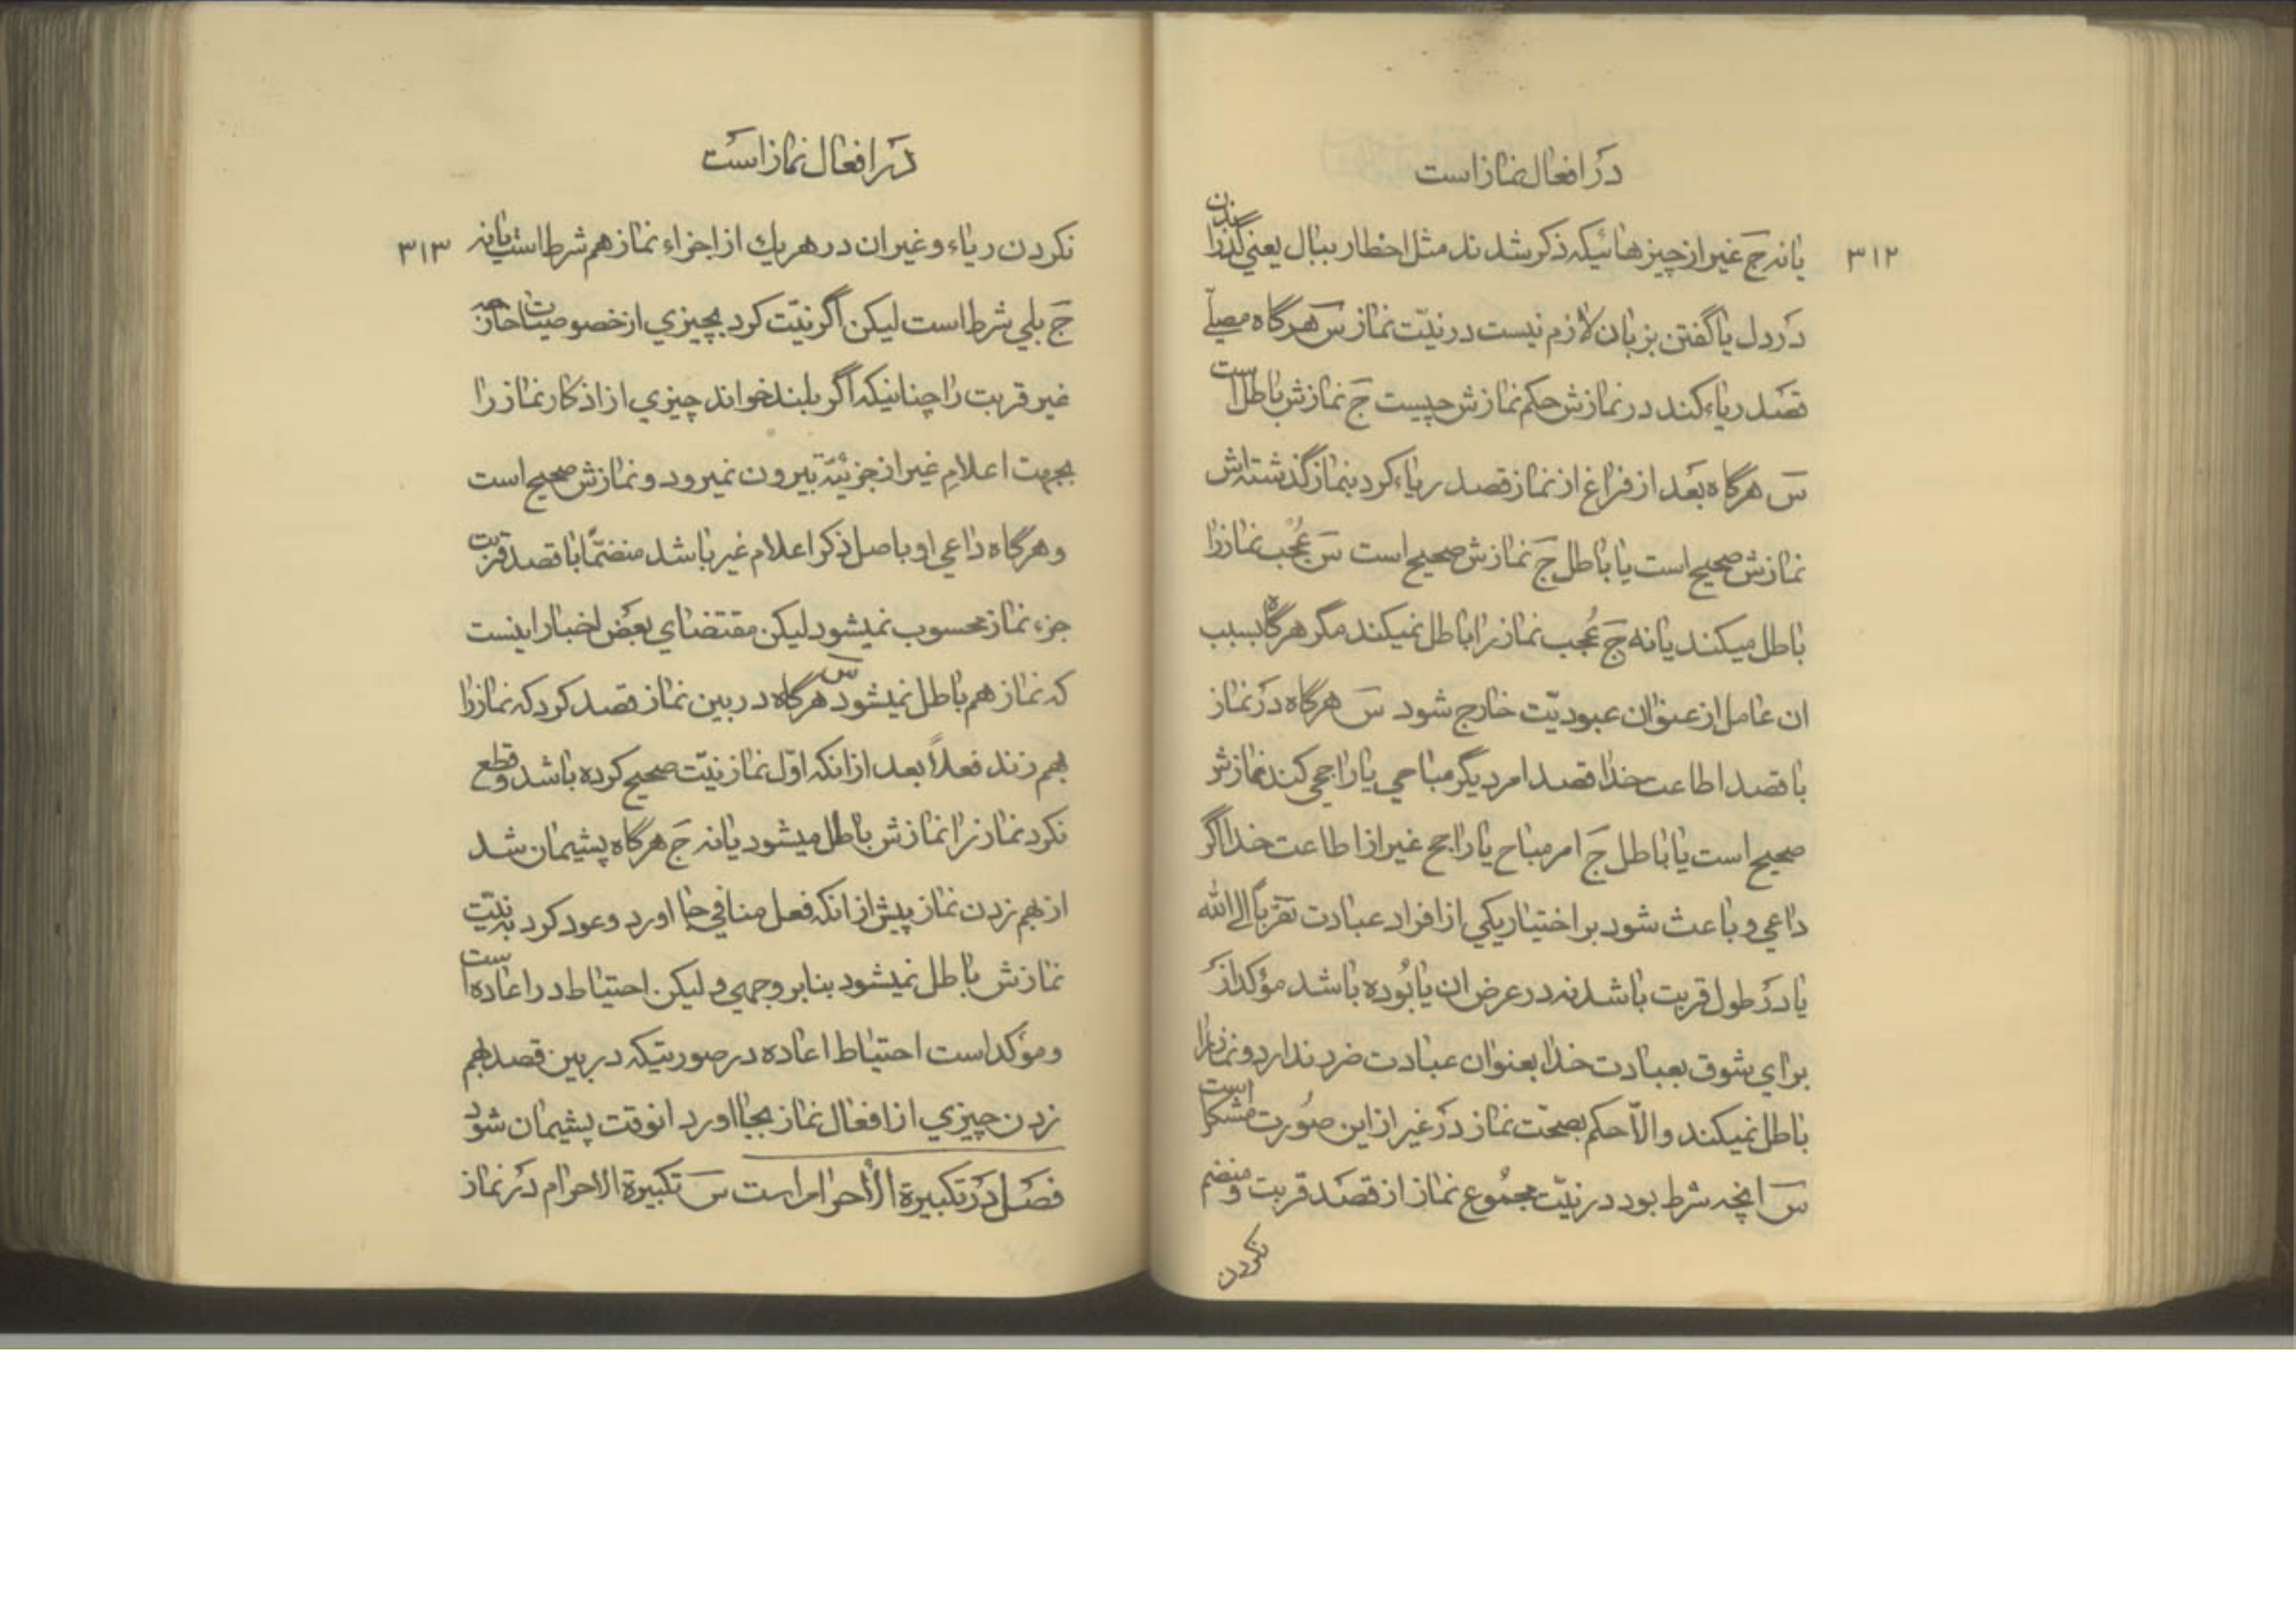 در افعال نماز است
۳۱۲
یا نه جَ غیر از چیزهائیکه ذکر شدند مثل اخطار ببال یعنی گذرانیدن
در دل یا گفتن بزبان لازم نیست در نیّت نماز سَ هرگاه مصلّی
قصد ریاء کند در نمازش حکم نمازش چیست جَ نمازش باطل است
سَ هرگاه بعد از فراغ از نماز قصد ریاء کرد بنماز گذشته‌اش
نمازش صحیح است یا باطل جَ نمازش صحیح است سَ عُجب نماز را
باطل میکند یا نه جَ عُجب نماز را باطل نمیکند مگر هرگاه بسبب
ان عامل از عنوان عبودیّت خارج شود سَ هرگاه در نماز
با قصد اطاعت خدا قصد امر دیگر مباحی یا راجحی کند نمازش
صحیح است یا باطل جَ امر مباح یا راجح غیر از اطاعت خدا اگر
داعی و باعث شود بر اختیار یکی از افراد عبادت تقرّباً الی الله
یا در طول قربت باشد نه در عرض ان یا بوده باشد مؤکد از
برای شوق بعبادت خدا بعنوان عبادت ضرر ندارد و نماز را
باطل نمیکند و الّا حکم بصحّت نماز در غیر از این صورت مشکل است
سَ انچه شرط بود در نیّت مجموع نماز از قصد قربت و منضم
نکردن
در افعال نماز است
۳۱۳
نکردن ریاء و غیر ان در هر یك از اجزاء نماز هم شرط است یا نه
جَ بلی شرط است لیکن اگر نیّت کرد بچیزی از خصوصیات خاصه
غیر قربت را چنانیکه اگر بلند خواند چیزی از اذکار نماز را
بجهت اعلامِ غیر از جزئیّة بیرون نمیرود و نمازش صحیح است
و هرگاه داعی او باصل ذکر اعلام غیر باشد منضمّاً با قصد قربت
جزء نماز محسوب نمیشود لیکن مقتضای بعض اخبار اینست
که نماز هم باطل نمیشود سَ هرگاه در بین نماز قصد کرد که نماز را
بهم زند فعلاً بعد از انکه اوّل نماز نیّت صحیح کرده باشد و قطع
نکرد نماز را نمازش باطل میشود یا نه جَ هرگاه پشیمان شد
از بهم زدن نماز پیش از انکه فعل منافی جا اورد و عود کرد به نیّت
نمازش باطل نمیشود بنابر وجهی و لیکن احتیاط در اعاده است
و مؤکد است احتیاط اعاده در صورتیکه در بین قصد بهم
زدن چیزی از افعال نماز بجا اورد انوقت پشیمان شود
فصل در تکبیرة الأحرام است سَ تکبیرة الاحرام در نماز